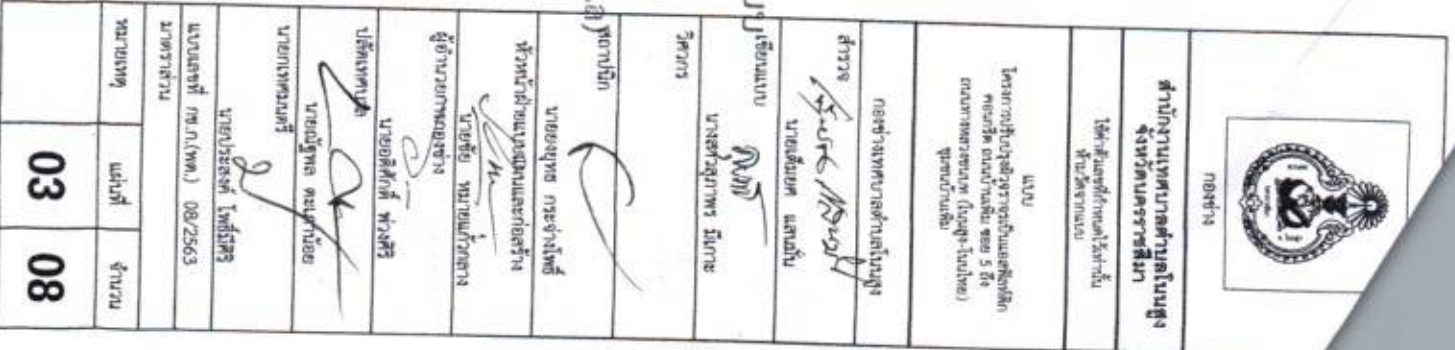 กองช่าง
สำนักงานเทศบาลตำบลโนนสูง
จังหวัดนครราชสีมา
ใช้ค่าตัวเลขที่กำหนดไว้เท่านั้น
ห้ามวัดจากแบบ
แบบ
โครงการปรับปรุงผิวจราจรเป็นแอสฟัลท์ติก
คอนกรีต ถนนบ้านเพิ่ม ซอย 5 ถึง
ถนนทางหลวงชนบท (โนนสูง-โนนไทย)
ชุมชนบ้านเพิ่ม
กองช่างเทศบาลตำบลโนนสูง
สำรวจ
เขียนแบบ
นางสาวสุภาพร มีเกาะ
วิศวกร
สถาปนิก
นายยงยุทธ กระจ่างโพธิ์
หัวหน้าฝ่ายแบบแผนและก่อสร้าง
นายชัย หมายแก้วกลาง
ผู้อำนวยการกองช่าง
นายอดิศักดิ์ พ่วงศิริ
ปลัดเทศบาล
นายณัฐพล
นายกเทศมนตรี
นายประสงค์ โพธิ์มีศิริ
แบบเลขที่ กช.ก.(ทถ.) 08/2563
มาตราส่วน
หมายเหตุ แผ่นที่ จำนวน
03 08